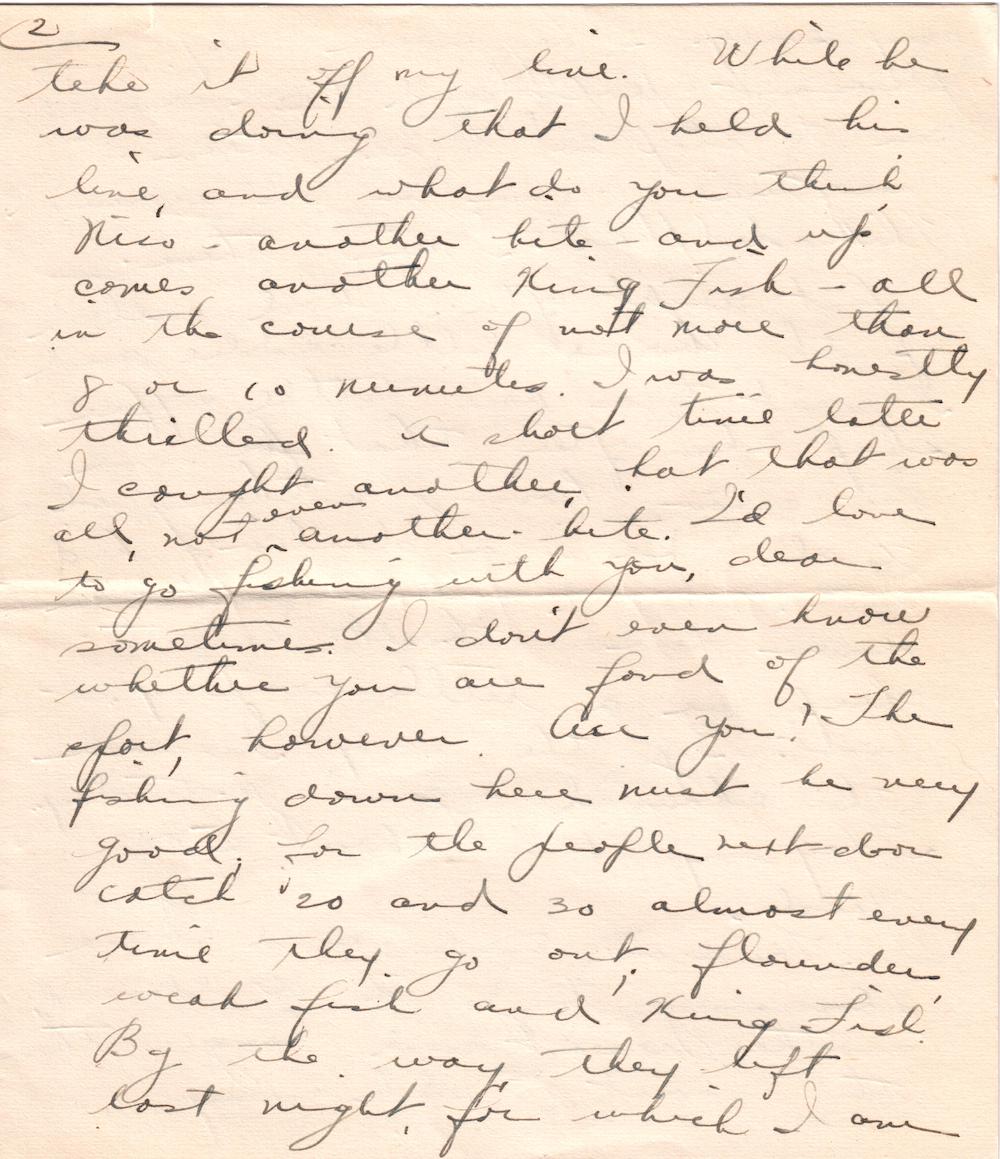 2
take it off my line. While he
was doing that I held his
line, and what do you think,
Nico - another bite - and up
comes another King Fish - all
in the course of not more than
8 or 10 minutes. I was honestly
thrilled. A short time later
I caught another, but that was
all, not even another bite. I'd love
to go fishing with you, dear
sometime. I don't even know
whether you are fond of the
sport, however. Are you? The
fishing down here must be very
good, for the people next door
catch 20 and 30 almost every
time they go out, flounders,
weak fish and King Fish.
By the way, they left
last night, for which I am